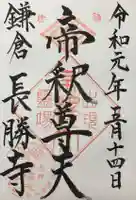 令和元年五月十四日
帝釈尊天
鎌倉 長勝寺